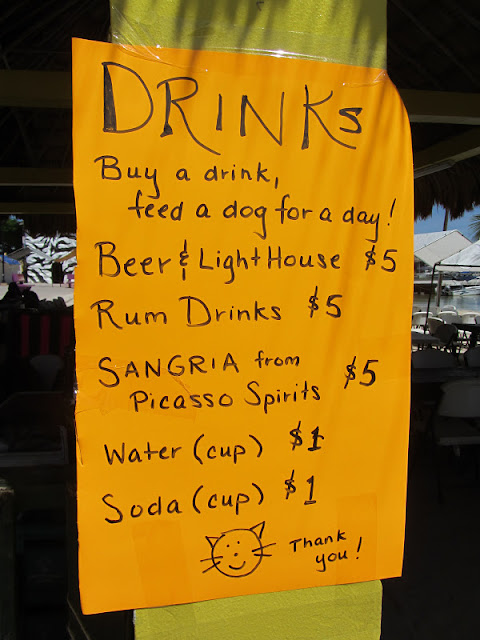 DRINKS
Buy a drink,
feed a dog for a day!
Beer & LightHouse $5
Rum Drinks $5
SANGRIA from
Picasso Spirits $5
Water (cup) $1
Soda (cup) $1
Thank
you!